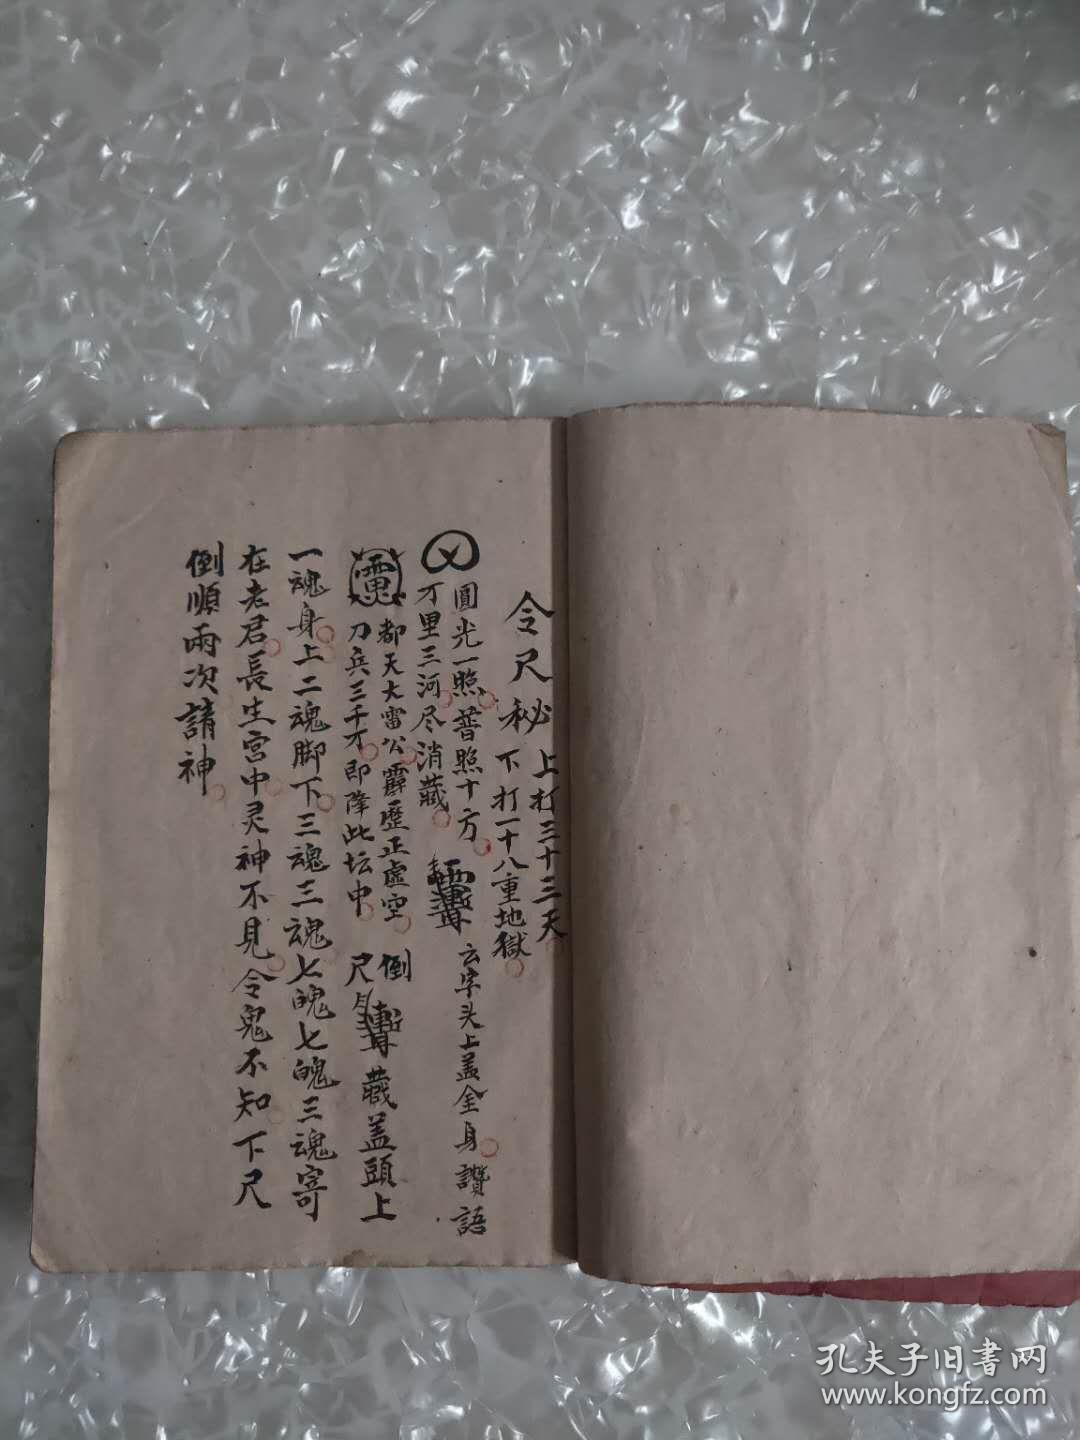 令尺秘
上打三十三天
下打一十八重地獄
圓光一照普照十方
才里三河尽消藏
云字头上盖全身讚語
都天大雷公霹歷正虛空
刀兵三千才即降此坛中
倒尺
藏盖頭上
一魂身上二魂脚下三魂三魂七魄七魄三魂寄
在老君長生宮中灵神不見令鬼不知下尺
倒順兩次請神
孔夫子旧書网
www.kongfz.com